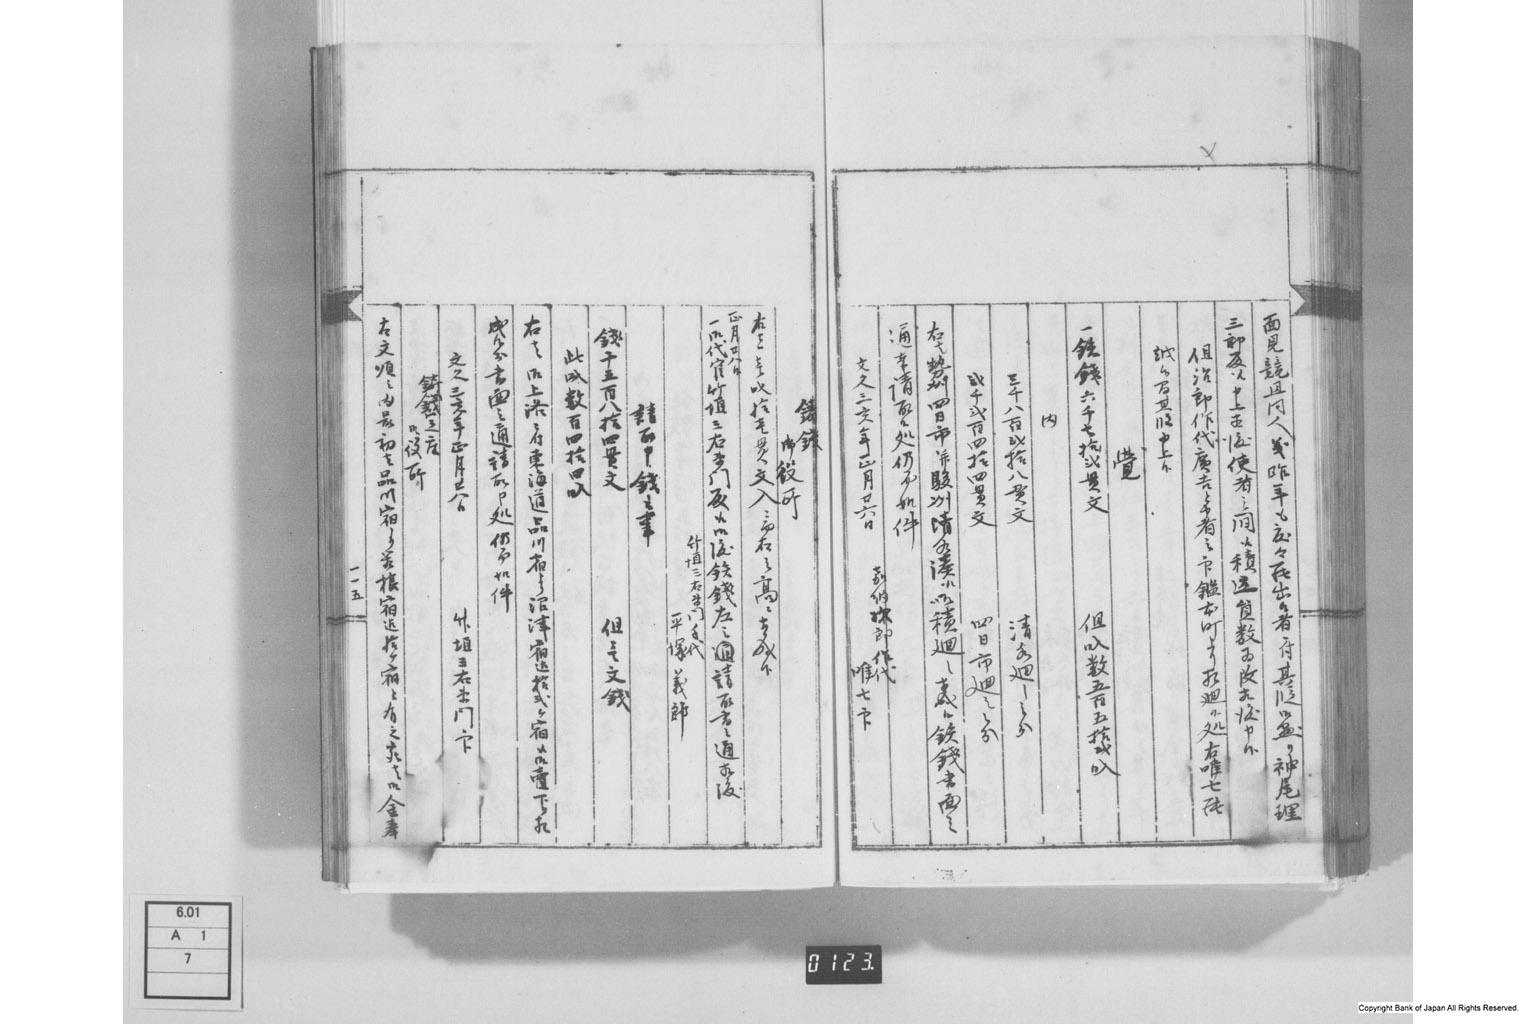 面見競且同人義昨年も度々罷出候者ニ付其段御蔵ゟ神尾理
三郎殿江申上置候使者之間江積送員数為改相渡申候
但治郎作代廣吉与申者之下鑑本町ゟ相廻候処右唯七罷
越候間其段申上候
覚
一鉄錢六千七拾弐貫文 但叺数五百五拾弐叺
内
三千八百弐拾八貫文 清水廻し之分
弐千弐百四拾四貫文 四日市廻之分
右者勢州四日市并駿州清水湊江御積廻し相成候鉄錢書面之
通奉請取候処仍而如件
文久三亥年正月廿六日 嘉納次郎作代 唯七印
鋳錢
御役所
右者壱叺拾壱貫文入ニ而右之高ニ相成候
正月廿八日
一御代官竹垣三右衛門殿江御渡鉄錢左之通請取書之通相渡
竹垣三右衛門手代
平塚義郎
請取申錢之事
錢千五百八拾四貫文 但壱文錢
此叺数百四拾四叺
右者御上洛ニ付東海道品川宿ゟ沼津宿迄拾弐ヶ宿江御壱下ヶ相
成候分書面之通請取申処仍而如件
文久三亥年正月廿八日 竹垣三右衛門印
鋳錢之座
御役所
右文順之内最初者品川宿ゟ箱根宿迄拾ヶ宿と有之候者御金奉
一一五
6.01
A 1
7
0123.
Copyright Bank of Japan All Rights Reserved.